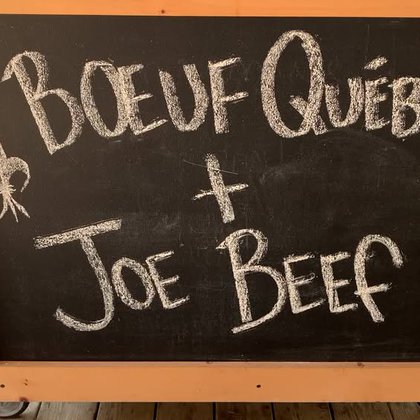 BŒUF QUÉB
+
JOE BEEF